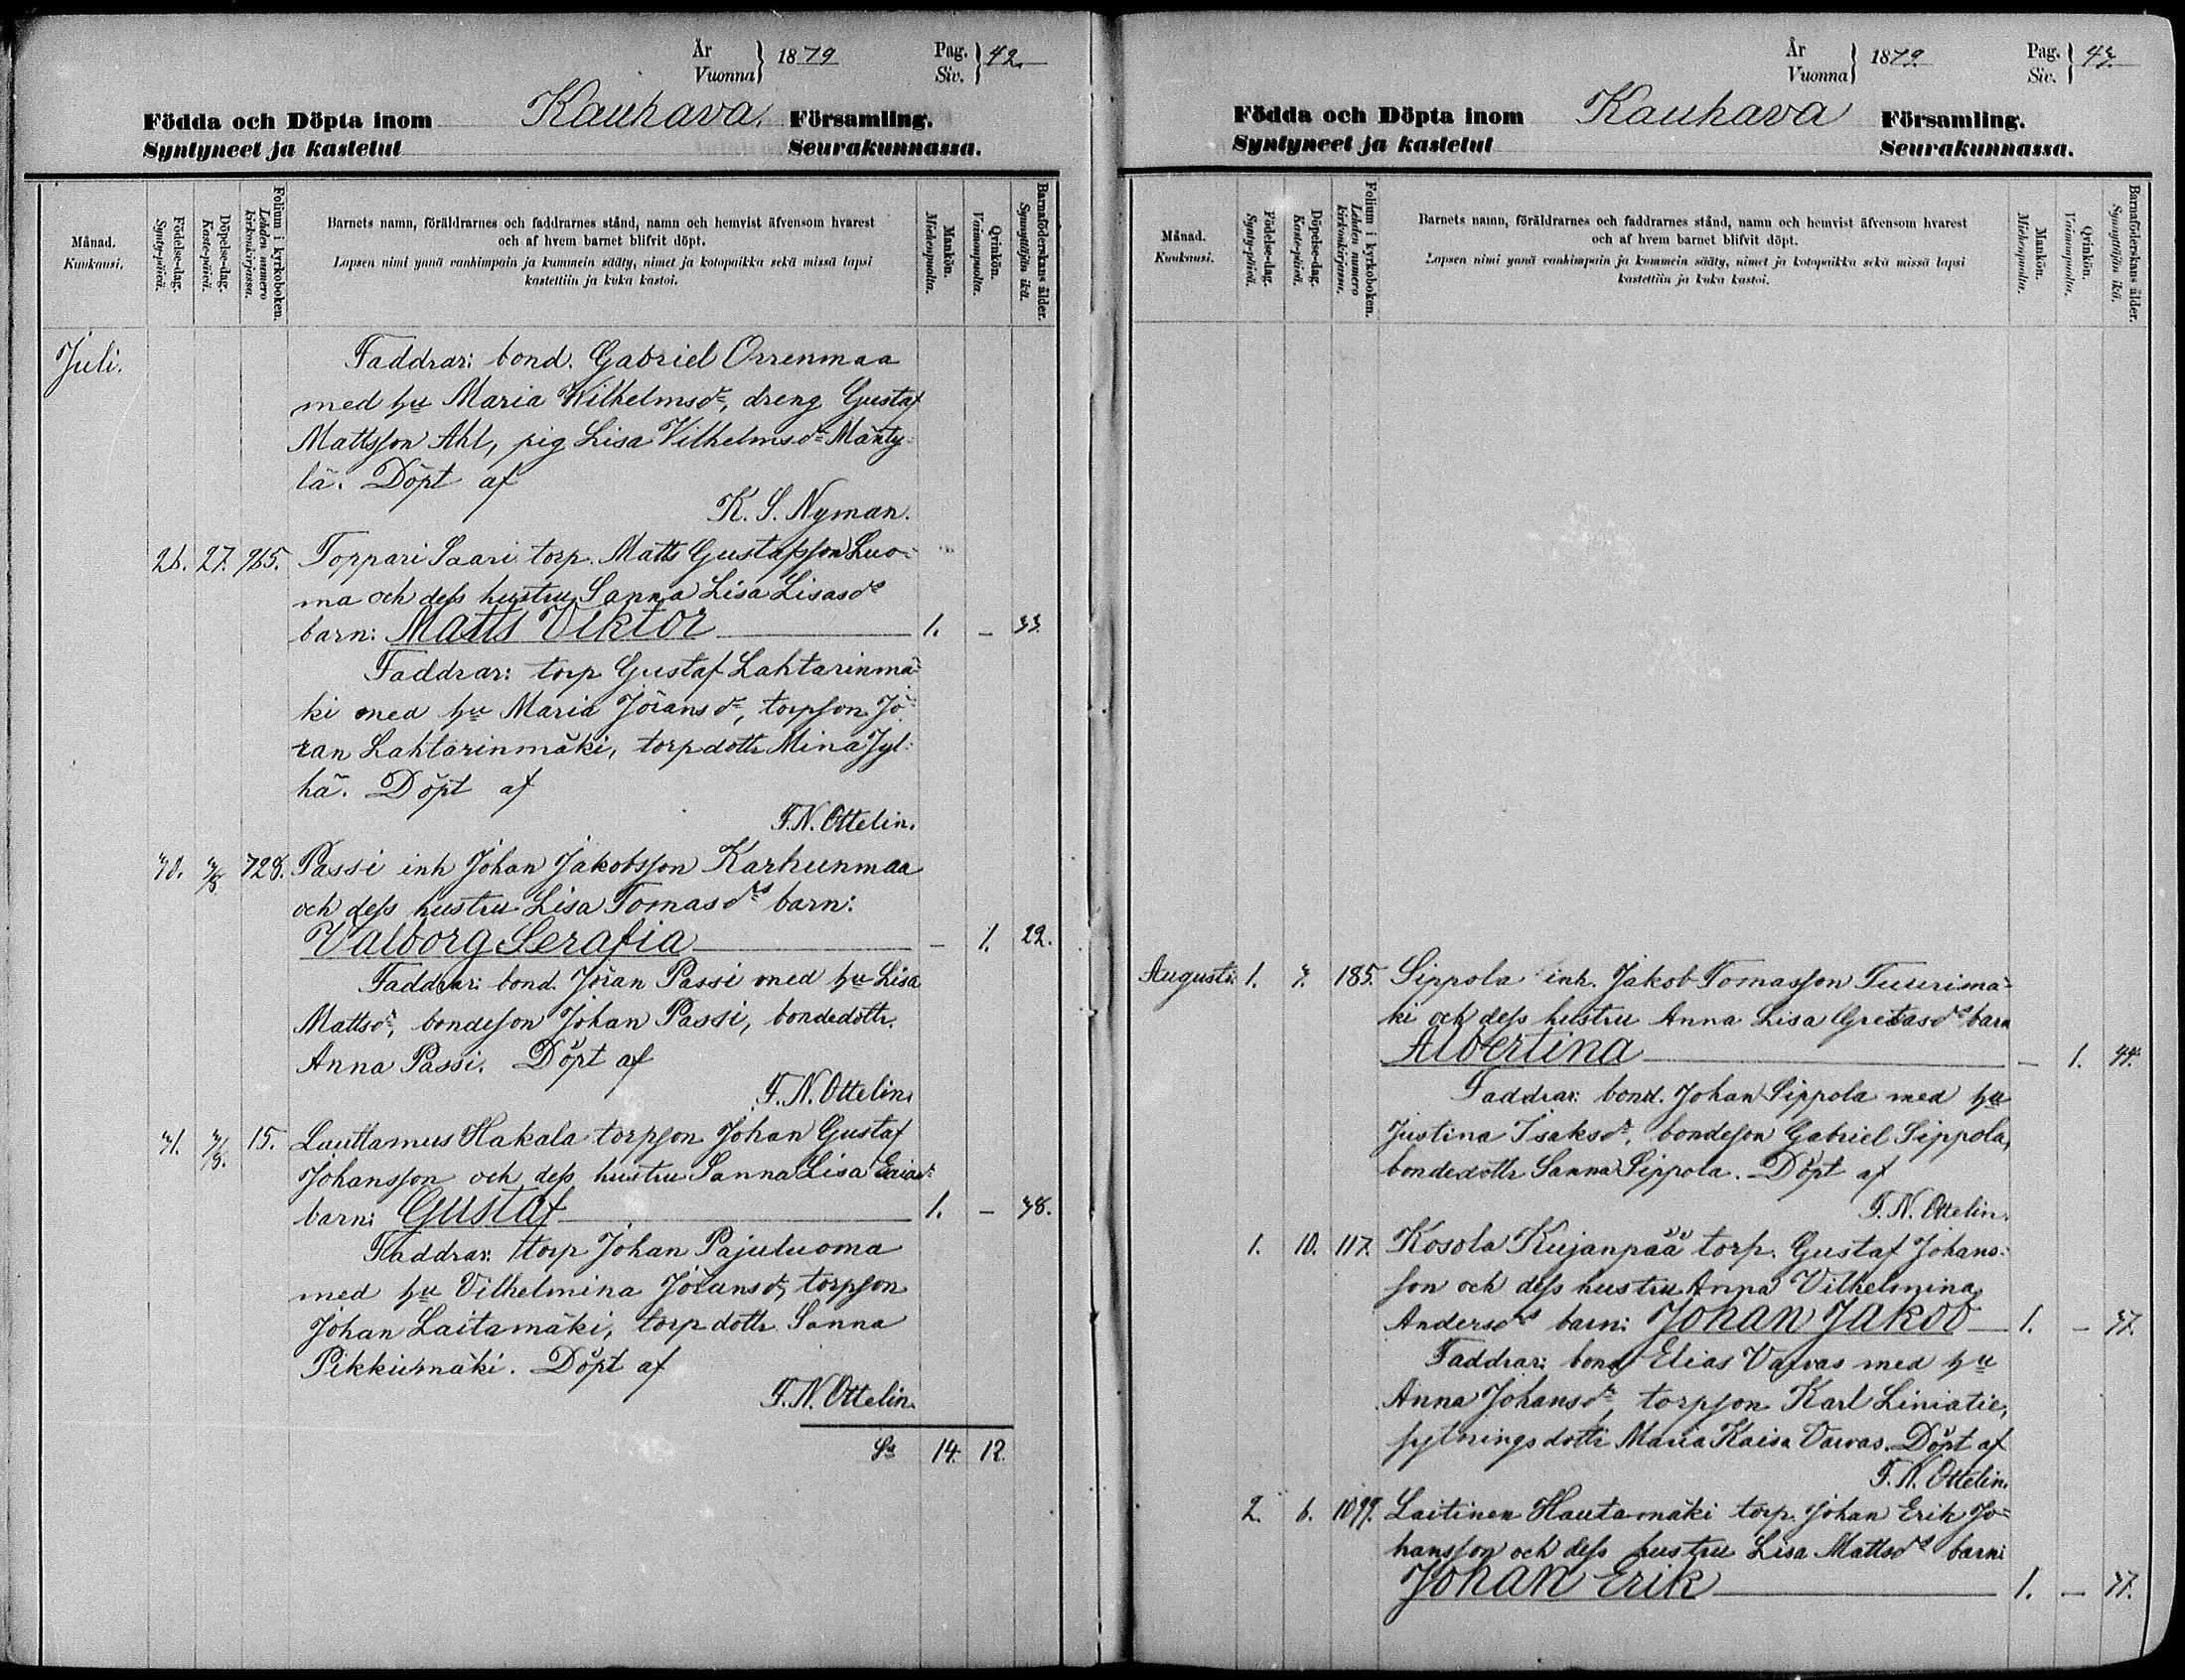 År
Vuonna } 1879
Pag.
Siv. } 42.
Födda och Döpta inom Kauhava. Församling.
Syntyneet ja kastetut Seurakunnassa.
Månad.
Kuukausi.
Födelse-dag.
Synty-päivä.
Döpelse-dag.
Kaste-päivä.
Folium i kyrkoboken.
Lehden numero kirkonkirjassa.
Barnets namn, föräldrarnes och faddrarnes stånd, namn och hemvist äfvensom hvarest
och af hvem barnet blifvit döpt.
Lapsen nimi ynnä vanhimpain ja kummein sääty, nimet ja kotopaikka sekä missä lapsi
kastettiin ja kuka kastoi.
Mankön.
Miehenpuolta.
Qvinkön.
Vaimonpuolta.
Barnaföderskans ålder.
Synnyttäjän ikä.
Juli.
Faddrar: bond. Gabriel Orrenmaa
med hu Maria Wilhelmsdr, dreng Gustaf
Mattsson Ahl, pig Lisa Vilhelmsdr Mänty-
lä. Döpt af
K. S. Nyman.
26. 27. 965. Toppari Saari torp. Matts Gustafsson Luo-
ma och dess hustru Sanna Lisa Lisasds
barn: Matts Viktor 1. – 33.
Faddrar: torp Gustaf Lahtarinmä-
ki med hu Maria Jöransdr, torpson Jö-
ran Lahtarinmäki, torpdottr Mina Jyl-
hä. Döpt af
F. N. Ottelin.
30. 3/8 728. Passi inh Johan Jakobsson Karhunmaa
och dess hustru Lisa Tomasdrs barn:
Valborg Serafia – 1. 22.
Faddrar: bond. Jöran Passi med hu Lisa
Mattsdr, bondeson Johan Passi, bondedottr.
Anna Passi. Döpt af
F. N. Ottelin.
31. 3/8. 15. Lauttamus Hakala torpson Johan Gustaf
Johansson och dess hustru Sanna Lisa
barn: Gustaf 1. – 38.
Faddrar: torp Johan Pajuluoma
med hu Vilhelmina Jöransdr, torpson
Johan Laitamäki, torpdottr Sanna
Pikkumäki. Döpt af
F. N. Ottelin.
Sa 14. 12.
År
Vuonna } 1879.
Pag.
Siv. } 43.
Födda och Döpta inom Kauhava Församling.
Syntyneet ja kastetut Seurakunnassa.
Månad.
Kuukausi.
Födelse-dag.
Synty-päivä.
Döpelse-dag.
Kaste-päivä.
Folium i kyrkoboken.
Lehden numero kirkonkirjassa.
Barnets namn, föräldrarnes och faddrarnes stånd, namn och hemvist äfvensom hvarest
och af hvem barnet blifvit döpt.
Lapsen nimi ynnä vanhimpain ja kummein sääty, nimet ja kotopaikka sekä missä lapsi
kastettiin ja kuka kastoi.
Mankön.
Miehenpuolta.
Qvinkön.
Vaimonpuolta.
Barnaföderskans ålder.
Synnyttäjän ikä.
Augusti. 1. 3. 185. Sippola inh. Jakob Tomasson Tuurimä-
ki och dess hustru Anna Lisa Gretasds barn
Albertina – 1. 44.
Faddrar: bond. Johan Sippola med hu
Justina Isaksdr, bondeson Gabriel Sippola,
bondedottr Sanna Sippola. Döpt af
F. N. Ottelin.
1. 10. 117. Kosola Kujanpää torp. Gustaf Johans-
son och dess hustru Anna Vilhelmina
Andersdrs barn: Johan Jakob 1. – 37.
Faddrar: bond Elias Varvas med hu
Anna Johansdr, torpson Karl Liniatie,
sytningsdottr Maria Kaisa Varvas. Döpt af
F. N. Ottelin.
2. 6. 1099. Laitinen Hautamäki torp. Johan Erik Jo-
hansson och dess hustru Lisa Mattsds barn:
Johan Erik 1. – 37.